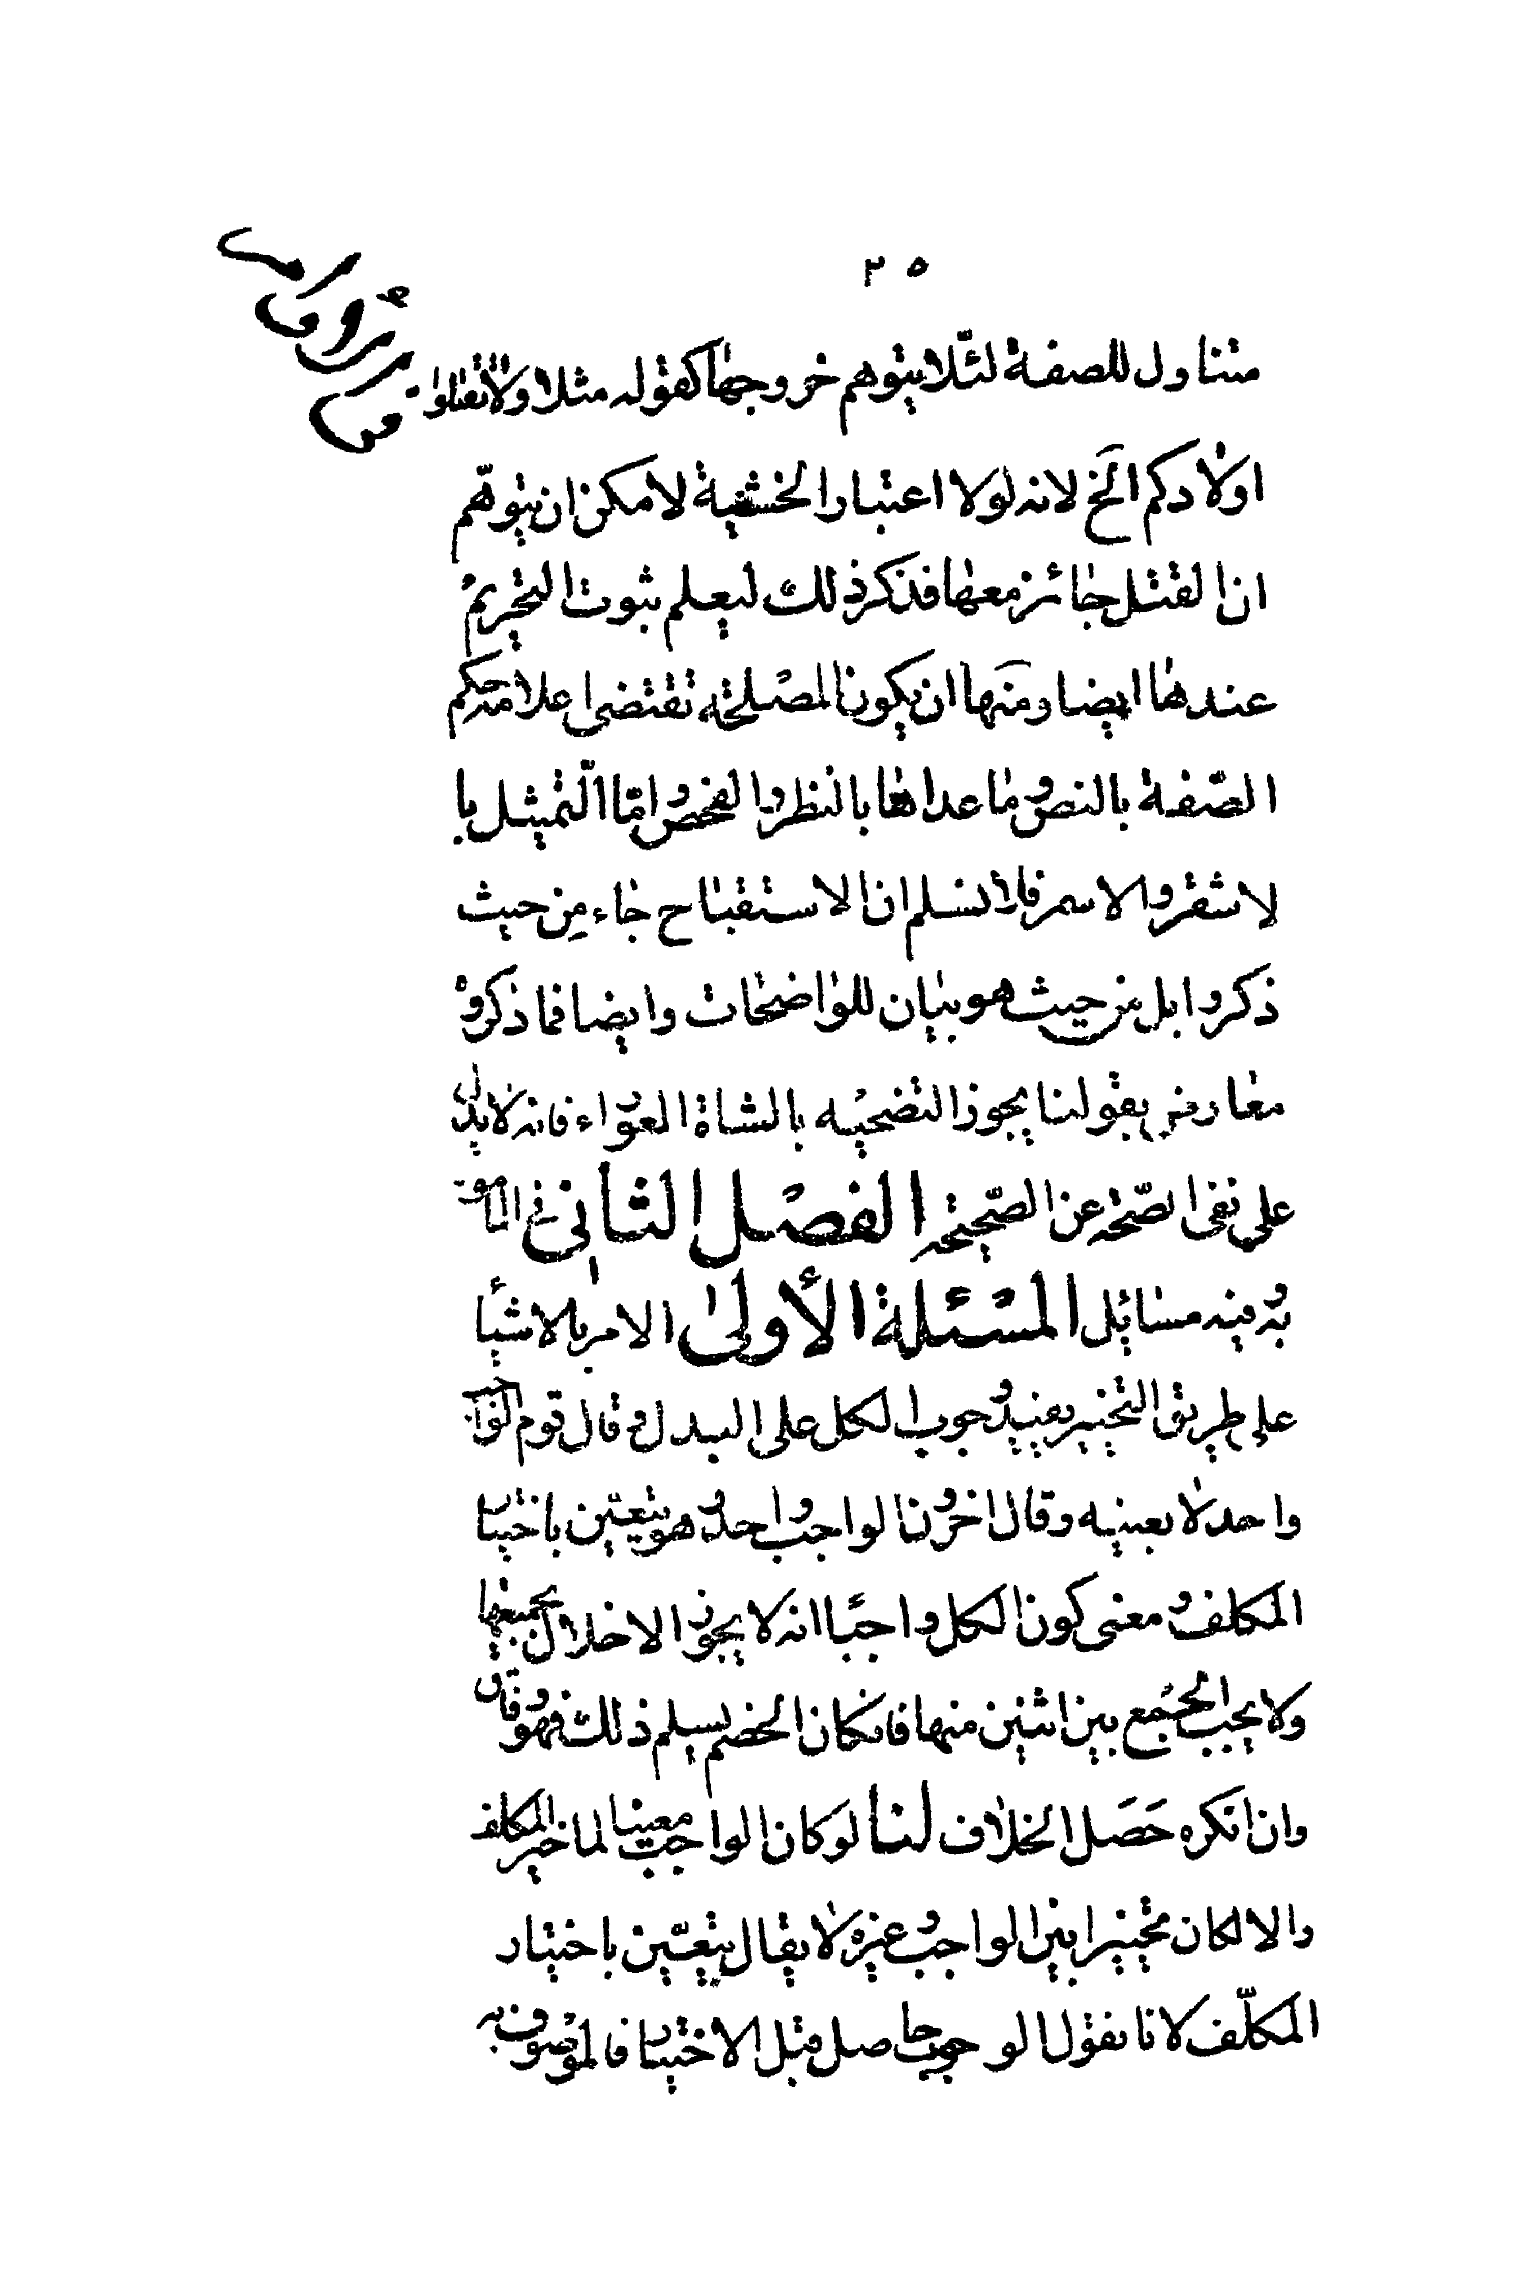 ٢٥
متناول للصفة لئلّا يتوهم خروجها كقوله مثلا ولا تقتلوا
اولادكم الخ لانه لولا اعتبار الخشية لامكن ان يتوهّم
ان القتل جائز معها فذكر ذلك ليعلم ثبوت التحريم
عندها ايضا ومنها ان يكون المصلحة تقتضى اعلامه حكم
الصّفة بالنص وما عداها بالنظر والفحص وامّا التمثيل با
لاشقر والاسمر فلا نسلم ان الاستقباح جاء من حيث
ذكروا بل من حيث هو بيان للواضحات وايضا فما ذكروه
معارض بقولنا يجوز التضحيه بالشاة العوراء فانه لا يدل
على نفى الصّحة عن الصّحيحه الفصل الثانى فى المامو
به وفيه مسائل المسئلة الأولى الامر بالاشياء
على طريق التخيير يفيد وجوب الكل على البدل وقال قوم الواجب
واحد لا بعينه وقال اخرون الواجب واحد وهو يتعيّن باختيار
المكلف ومعنى كون الكل واجبًا انه لا يجوز الاخلال بجميعها
ولا يجب الجمع بين اثنين منها فان كان الخصم يسلم ذلك فهو وفاق
وان انكره حصل الخلاف لنا لو كان الواجب معينا لما خير المكلف
والا لكان مخيرا بين الواجب وغيره لا يقال يتعيّن باختيار
المكلّف لانا نقول الوجوب حاصل قبل الاختيار فالموصوف به